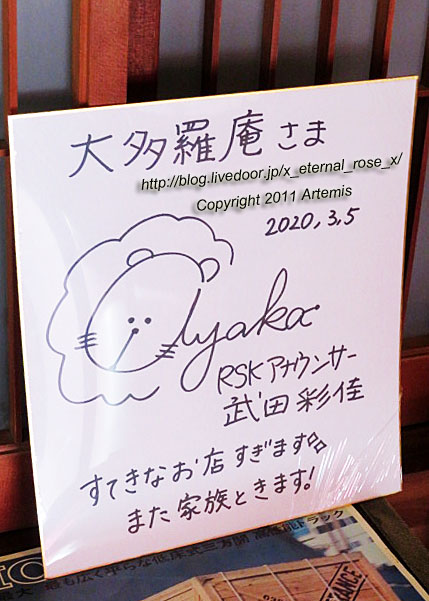 大多羅庵さま
http://blog.livedoor.jp/x_eternal_rose_x/
Copyright 2011 Artemis
2020,3,5
Ayaka
RSKアナウンサー
武田彩佳
すてきなお店すぎます
また家族ときます!